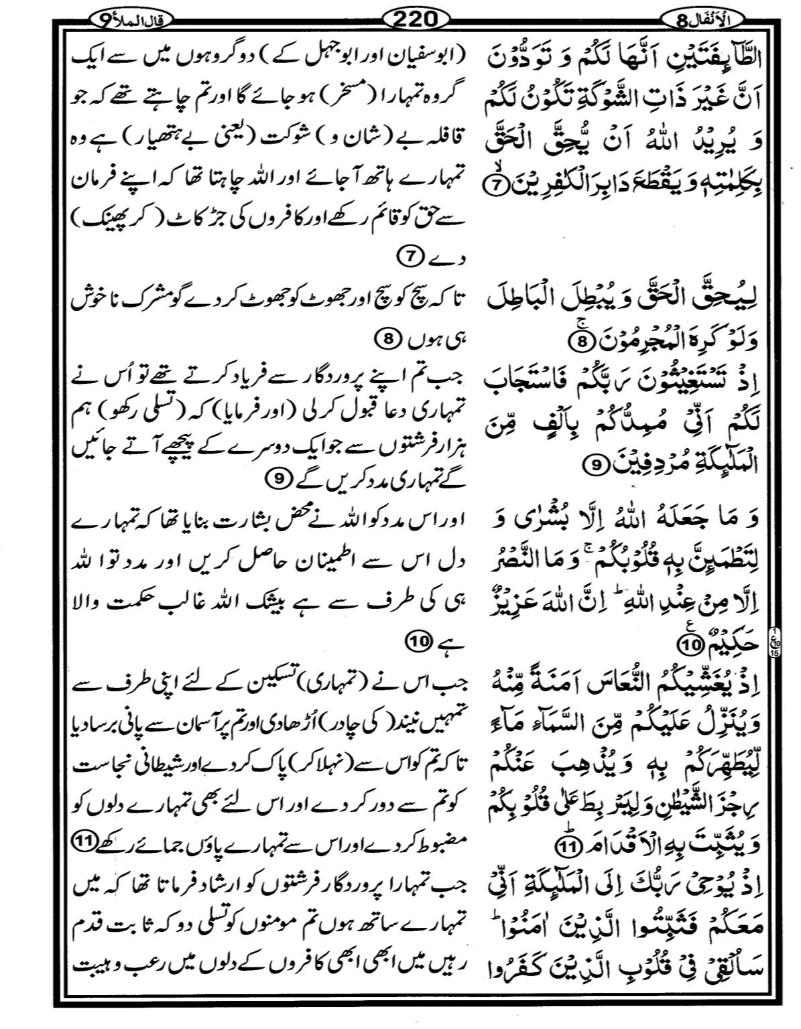 الْاَنْفَال 8
220
قال الملأ 9
الطَّآىِٕفَتَيْنِ اَنَّهَا لَكُمْ وَ تَوَدُّوْنَ
اَنَّ غَيْرَ ذَاتِ الشَّوْكَةِ تَكُوْنُ لَكُمْ
وَ يُرِيْدُ اللهُ اَنْ يُّحِقَّ الْحَقَّ
بِكَلِمٰتِهٖ وَ يَقْطَعَ دَابِرَ الْكٰفِرِيْنَۙ 7
لِيُحِقَّ الْحَقَّ وَ يُبْطِلَ الْبَاطِلَ
وَلَوْ كَرِهَ الْمُجْرِمُوْنَۚ 8
اِذْ تَسْتَغِيْثُوْنَ رَبَّكُمْ فَاسْتَجَابَ
لَكُمْ اَنِّيْ مُمِدُّكُمْ بِاَلْفٍ مِّنَ
الْمَلٰٓىِٕكَةِ مُرْدِفِيْنَ 9
وَ مَا جَعَلَهُ اللهُ اِلَّا بُشْرٰى وَ
لِتَطْمَىِٕنَّ بِهٖ قُلُوْبُكُمْۚ وَ مَا النَّصْرُ
اِلَّا مِنْ عِنْدِ اللهِؕ اِنَّ اللهَ عَزِيْزٌ
حَكِيْمٌ ع 10
اِذْ يُغَشِّيْكُمُ النُّعَاسَ اَمَنَةً مِّنْهُ
وَيُنَزِّلُ عَلَيْكُمْ مِّنَ السَّمَآءِ مَآءً
لِّيُطَهِّرَكُمْ بِهٖ وَ يُذْهِبَ عَنْكُمْ
رِجْزَ الشَّيْطٰنِ وَلِيَرْبِطَ عَلٰى قُلُوْبِكُمْ
وَ يُثَبِّتَ بِهِ الْاَقْدَامَؕ 11
اِذْ يُوْحِيْ رَبُّكَ اِلَى الْمَلٰٓىِٕكَةِ اَنِّيْ
مَعَكُمْ فَثَبِّتُوا الَّذِيْنَ اٰمَنُوْاؕ
سَاُلْقِيْ فِيْ قُلُوْبِ الَّذِيْنَ كَفَرُوا
(ابوسفیان اور ابوجہل کے) دو گروہوں میں سے ایک
گروہ تمہارا (مسخر) ہو جائے گا اور تم چاہتے تھے کہ جو
قافلہ بے (شان و) شوکت (یعنی بے ہتھیار) ہے وہ
تمہارے ہاتھ آ جائے اور اللہ چاہتا تھا کہ اپنے فرمان
سے حق کو قائم رکھے اور کافروں کی جڑ کاٹ (کر پھینک)
دے 7
تاکہ سچ کو سچ اور جھوٹ کو جھوٹ کر دے گو مشرک ناخوش
ہی ہوں 8
جب تم اپنے پروردگار سے فریاد کرتے تھے تو اُس نے
تمہاری دعا قبول کر لی (اور فرمایا) کہ (تسلی رکھو) ہم
ہزار فرشتوں سے جو ایک دوسرے کے پیچھے آتے جائیں
گے تمہاری مدد کریں گے 9
اور اس مدد کو اللہ نے محض بشارت بنایا تھا کہ تمہارے
دل اس سے اطمینان حاصل کریں اور مدد تو اللہ
ہی کی طرف سے ہے بیشک اللہ غالب حکمت والا
ہے 10
جب اس نے (تمہاری) تسکین کے لئے اپنی طرف سے
تمہیں نیند (کی چادر) اُڑھا دی اور تم پر آسمان سے پانی برسا دیا
تاکہ تم کو اس سے (نہلا کر) پاک کر دے اور شیطانی نجاست
کو تم سے دور کر دے اور اس لئے بھی تمہارے دلوں کو
مضبوط کر دے اور اس سے تمہارے پاؤں جمائے رکھے 11
جب تمہارا پروردگار فرشتوں کو ارشاد فرماتا تھا کہ میں
تمہارے ساتھ ہوں تم مومنوں کو تسلی دو کہ ثابت قدم
رہیں میں ابھی ابھی کافروں کے دلوں میں رعب و ہیبت